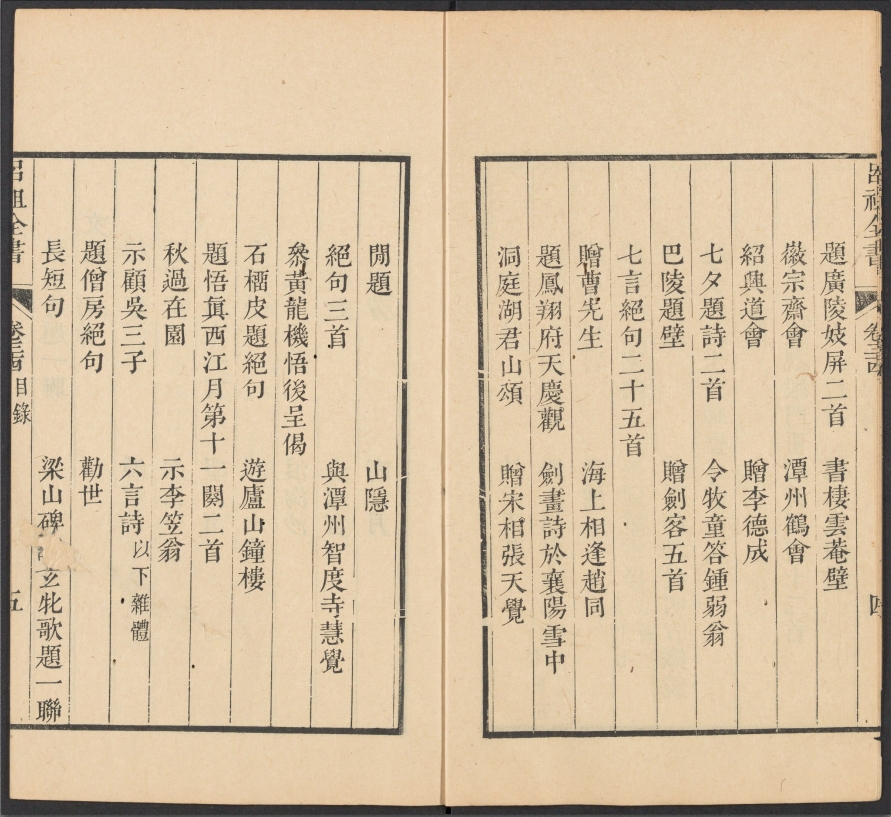 呂祖全書 卷三十四 四
題廣陵妓屏二首 書棲雲菴壁
徽宗齋會 潭州鶴會
紹興道會 贈李德成
七夕題詩二首 令牧童答鍾弱翁
巴陵題壁 贈劍客五首
七言絕句二十五首
贈曹先生 海上相逢趙同
題鳳翔府天慶觀 劍畫詩於襄陽雪中
洞庭湖君山頌 贈宋相張天覺
閒題 山隱
絕句三首 與潭州智度寺慧覺
叅黃龍機悟後呈偈
石榴皮題絕句 遊廬山鐘樓
題悟眞西江月第十一闋二首
秋過在園 示李笠翁
示顧吳三子 六言詩以下雜體
題僧房絕句 勸世
長短句 梁山碑 玄牝歌題一聯
呂祖全書 卷三十四目錄 五